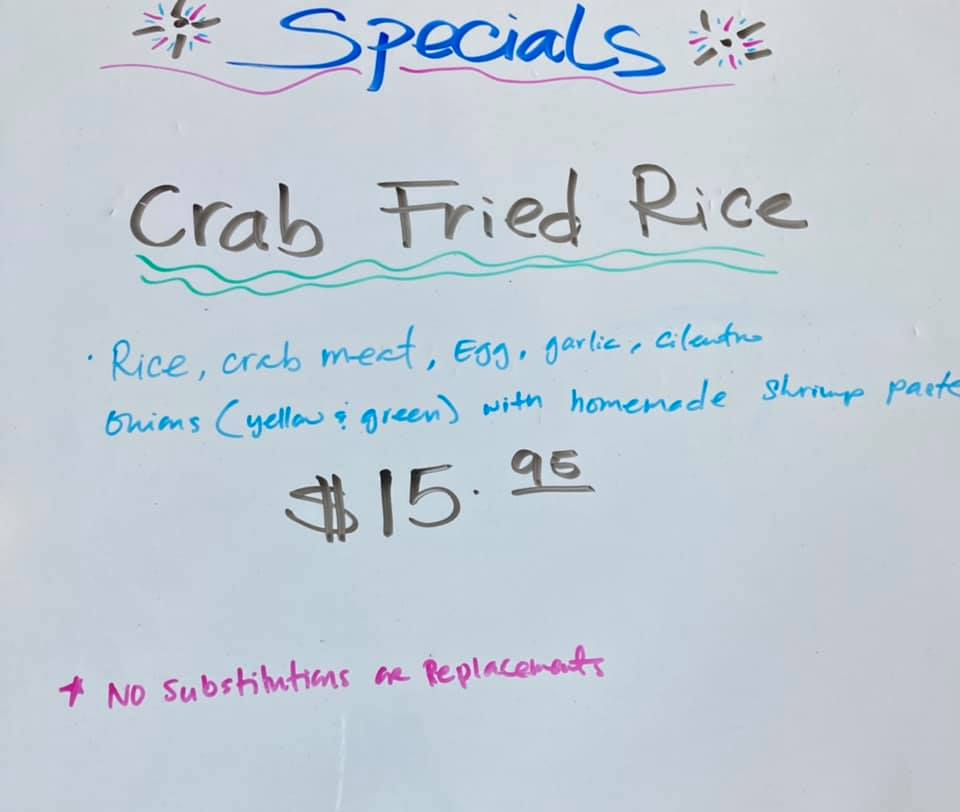 Specials
Crab Fried Rice
· Rice, crab meat, Egg, garlic, cilantro
Onions (yellow & green) with homemade shrimp paste
$15.95
* No Substitutions or Replacements